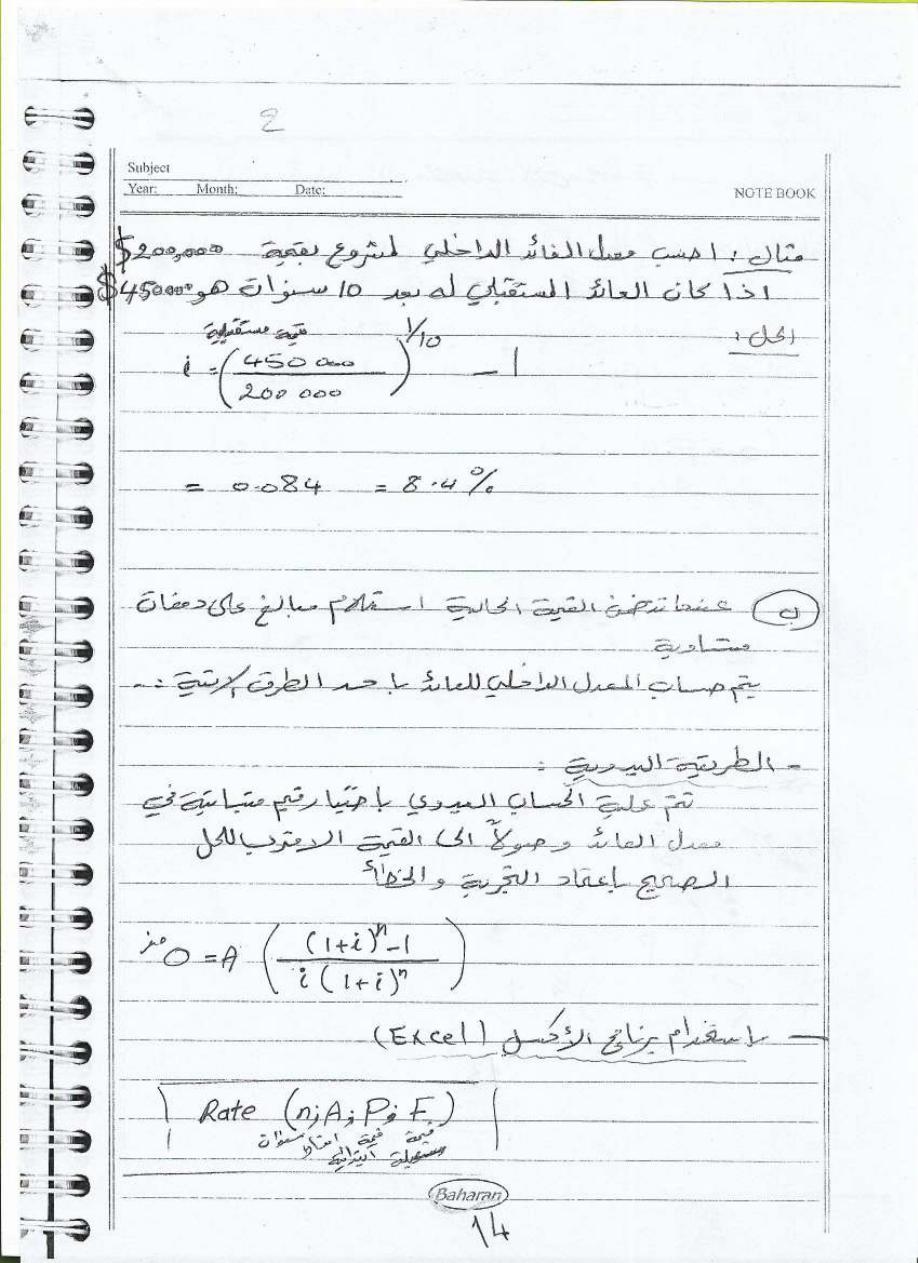 2
Subject
Year: Month: Date:
NOTE BOOK
مثال : احسب معدل العائد الداخلي لمشروع بقيمة 200,000$
اذا كان العائد المستقبلي له بعد 10 سنوات هو 450000$
الحل :
قيمة مستقبلية
i = (450 000 / 200 000)^1/10 - 1
= 0.084 = 8.4%
ب عندما تتضمن القيمة الحالية استلام مبالغ على دفعات
متساوية
يتم حساب المعدل الداخلي للعائد باحد الطرق الاتية :-
- الطريقة اليدوية :
تتم عملية الحساب اليدوي باختيار قيم متباينة في
معدل العائد وصولاً الى القيمة الاقرب للحل
الصحيح بإعتماد التجربة والخطأ
0 = A ( (1+i)^n - 1 / i (1+i)^n )
- باستخدام برنامج الأكسل (Excel)
Rate (n; A; P; F)
سنوات اقساط قيمة ابتدائية قيمة مستقبلية
Baharan
14